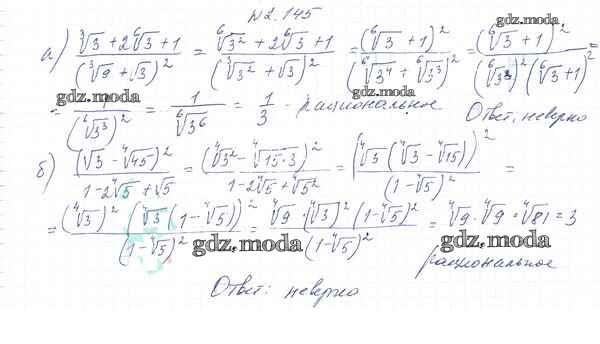 №2.145
gdz.moda
а) (∛3 + 2⁶√3 + 1)/(∛9 + √3)² = (⁶√3² + 2⁶√3 + 1)/(∛3² + √3)² = (⁶√3 + 1)²/(⁶√3⁴ + ⁶√3³)² = (⁶√3 + 1)²/((⁶√3³)² (⁶√3 + 1)²) =
gdz.moda
gdz.moda
= 1/(⁶√3³)² = 1/⁶√3⁶ = 1/3 - рациональное Ответ, неверно
б) (√3 - ⁴√45)²/(1 - 2⁴√5 + √5) = (⁴√3² - ⁴√15·3)²/(1 - 2⁴√5 + ⁴√5²) = (⁴√3 (⁴√3 - ⁴√15))²/(1 - ⁴√5)² =
= (⁴√3)² (⁴√3 (1 - ⁴√5))²/(1 - ⁴√5)² = ⁴√9 · (⁴√3)² (1 - ⁴√5)²/(1 - ⁴√5)² = ⁴√9 · ⁴√9 = ⁴√81 = 3
gdz.moda
gdz.moda
рациональное
Ответ: неверно